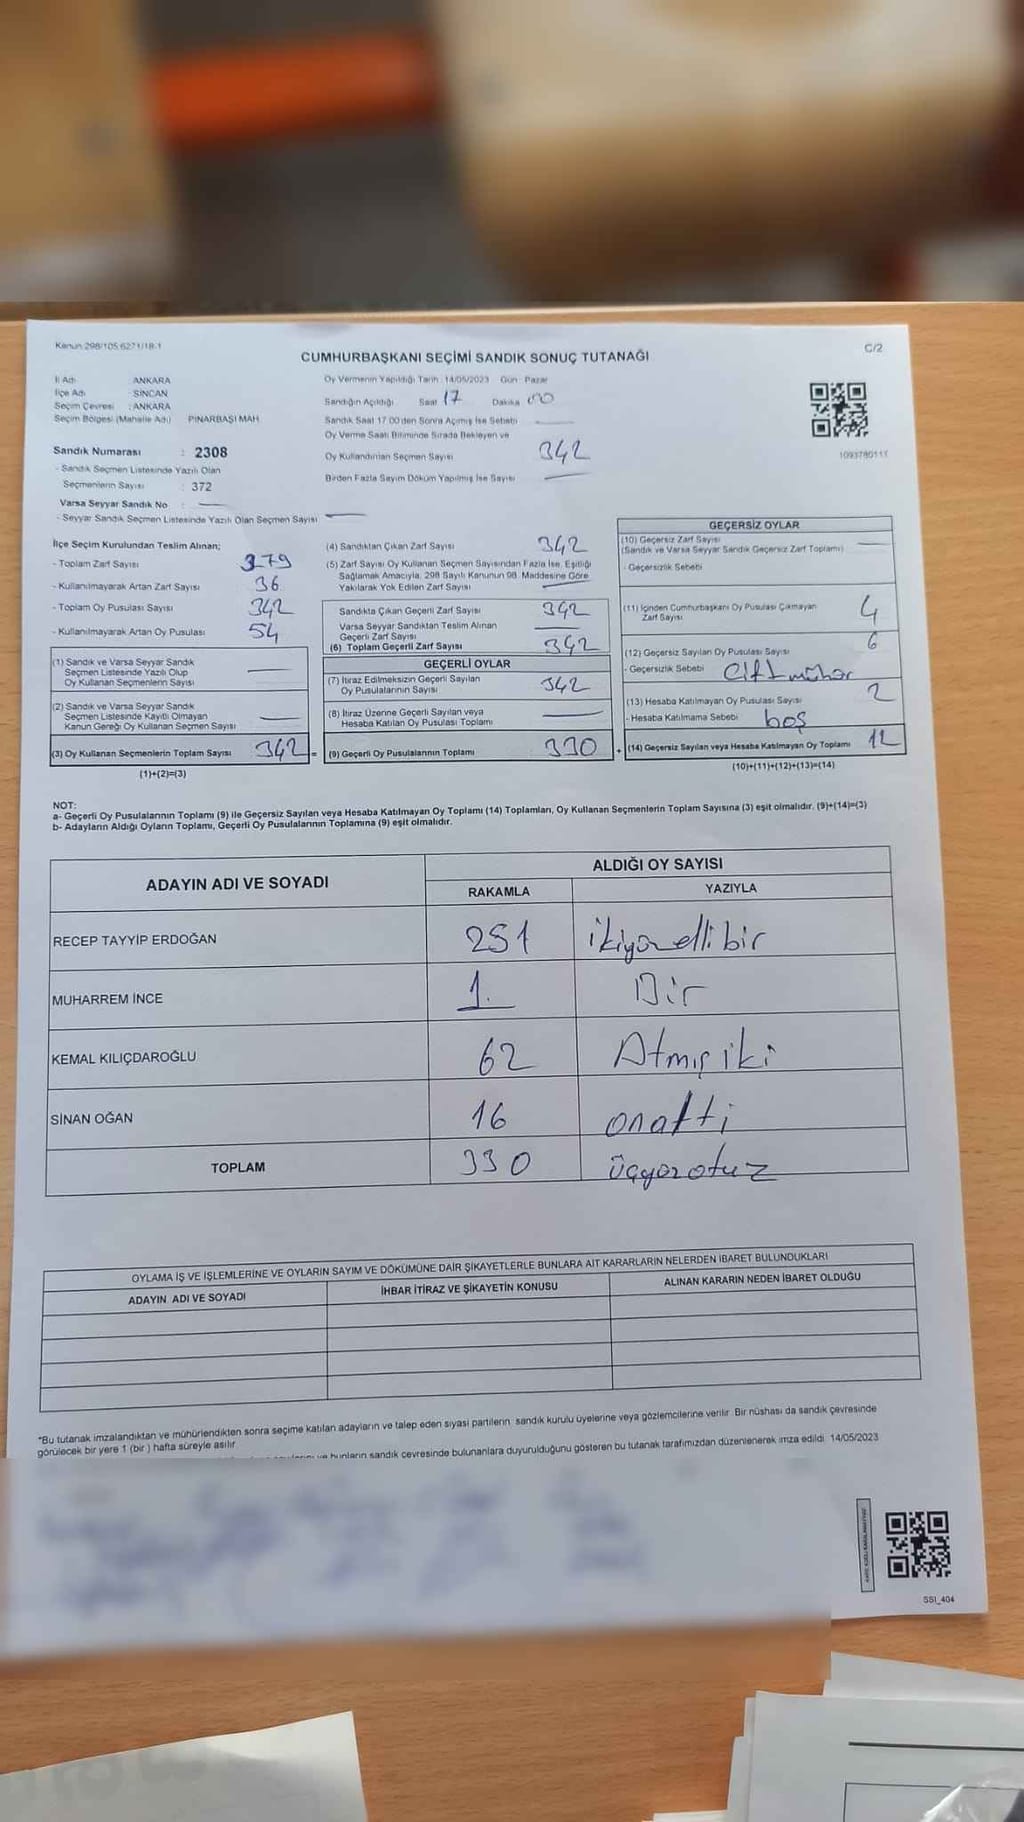 Kanun 298/105 6271/18-1
C/2
CUMHURBAŞKANI SEÇİMİ SANDIK SONUÇ TUTANAĞI
İl Adı : ANKARA
İlçe Adı : SİNCAN
Seçim Çevresi : ANKARA
Seçim Bölgesi (Mahalle Adı) PINARBAŞI MAH
Sandık Numarası : 2308
- Sandık Seçmen Listesinde Yazılı Olan
Seçmenlerin Sayısı : 372
Varsa Seyyar Sandık No :
- Seyyar Sandık Seçmen Listesinde Yazılı Olan Seçmen Sayısı
Oy Vermenin Yapıldığı Tarih : 14/05/2023 Gün : Pazar
Sandığın Açıldığı Saat 17 Dakika 00
Sandık Saat 17:00'den Sonra Açımış İse Sebebi
Oy Verme Saati Bitiminde Sırada Bekleyen ve
Oy Kullandırılan Seçmen Sayısı 342
Birden Fazla Sayım Döküm Yapılmış İse Sayısı
İlçe Seçim Kurulundan Teslim Alınan;
- Toplam Zarf Sayısı 379
- Kullanılmayarak Artan Zarf Sayısı 36
- Toplam Oy Pusulası Sayısı 342
- Kullanılmayarak Artan Oy Pusulası 54
(1) Sandık ve Varsa Seyyar Sandık
Seçmen Listesinde Yazılı Olup
Oy Kullanan Seçmenlerin Sayısı
(2) Sandık ve Varsa Seyyar Sandık
Seçmen Listesinde Kayıtlı Olmayan
Kanun Gereği Oy Kullanan Seçmen Sayısı
(3) Oy Kullanan Seçmenlerin Toplam Sayısı 342 =
(1)+(2)=(3)
(4) Sandıktan Çıkan Zarf Sayısı 342
(5) Zarf Sayısı Oy Kullanan Seçmen Sayısından Fazla İse, Eşitliği
Sağlamak Amacıyla, 298 Sayılı Kanunun 98. Maddesine Göre
Yakılarak Yok Edilen Zarf Sayısı
Sandıkta Çıkan Geçerli Zarf Sayısı 342
Varsa Seyyar Sandıktan Teslim Alınan
Geçerli Zarf Sayısı
(6) Toplam Geçerli Zarf Sayısı 342
GEÇERLİ OYLAR
(7) İtiraz Edilmeksizin Geçerli Sayılan
Oy Pusulalarının Sayısı 342
(8) İtiraz Üzerine Geçerli Sayılan veya
Hesaba Katılan Oy Pusulası Toplamı
(9) Geçerli Oy Pusulalarının Toplamı 330 +
1093780111
GEÇERSİZ OYLAR
(10) Geçersiz Zarf Sayısı
(Sandık ve Varsa Seyyar Sandık Geçersiz Zarf Toplamı)
- Geçersizlik Sebebi
(11) İçinden Cumhurbaşkanı Oy Pusulası Çıkmayan
Zarf Sayısı 4
(12) Geçersiz Sayılan Oy Pusulası Sayısı 6
- Geçersizlik Sebebi Çift mühür
(13) Hesaba Katılmayan Oy Pusulası Sayısı 2
- Hesaba Katılmama Sebebi boş
(14) Geçersiz Sayılan veya Hesaba Katılmayan Oy Toplamı 12
(10)+(11)+(12)+(13)=(14)
NOT:
a- Geçerli Oy Pusulalarının Toplamı (9) ile Geçersiz Sayılan veya Hesaba Katılmayan Oy Toplamı (14) Toplamları, Oy Kullanan Seçmenlerin Toplam Sayısına (3) eşit olmalıdır. (9)+(14)=(3)
b- Adayların Aldığı Oyların Toplamı, Geçerli Oy Pusulalarının Toplamına (9) eşit olmalıdır.
ADAYIN ADI VE SOYADI ALDIĞI OY SAYISI
RAKAMLA YAZIYLA
RECEP TAYYİP ERDOĞAN 251 ikiyüzellibir
MUHARREM İNCE 1. Bir
KEMAL KILIÇDAROĞLU 62 Atmış iki
SİNAN OĞAN 16 onaltı
TOPLAM 330 üçyüzotuz
OYLAMA İŞ VE İŞLEMLERİNE VE OYLARIN SAYIM VE DÖKÜMÜNE DAİR ŞİKAYETLERLE BUNLARA AİT KARARLARIN NELERDEN İBARET BULUNDUKLARI
ADAYIN ADI VE SOYADI İHBAR İTİRAZ VE ŞİKAYETİN KONUSU ALINAN KARARIN NEDEN İBARET OLDUĞU
*Bu tutanak imzalandıktan ve mühürlendikten sonra seçime katılan adayların ve talep eden siyasi partilerin sandık kurulu üyelerine veya gözlemcilerine verilir. Bir nüshası da sandık çevresinde
görülecek bir yere 1 (bir) hafta süreyle asılır.
ve bunların sandık çevresinde bulunanlara duyurulduğunu gösteren bu tutanak tarafımızdan düzenlenerek imza edildi. 14/05/2023
SSI_404